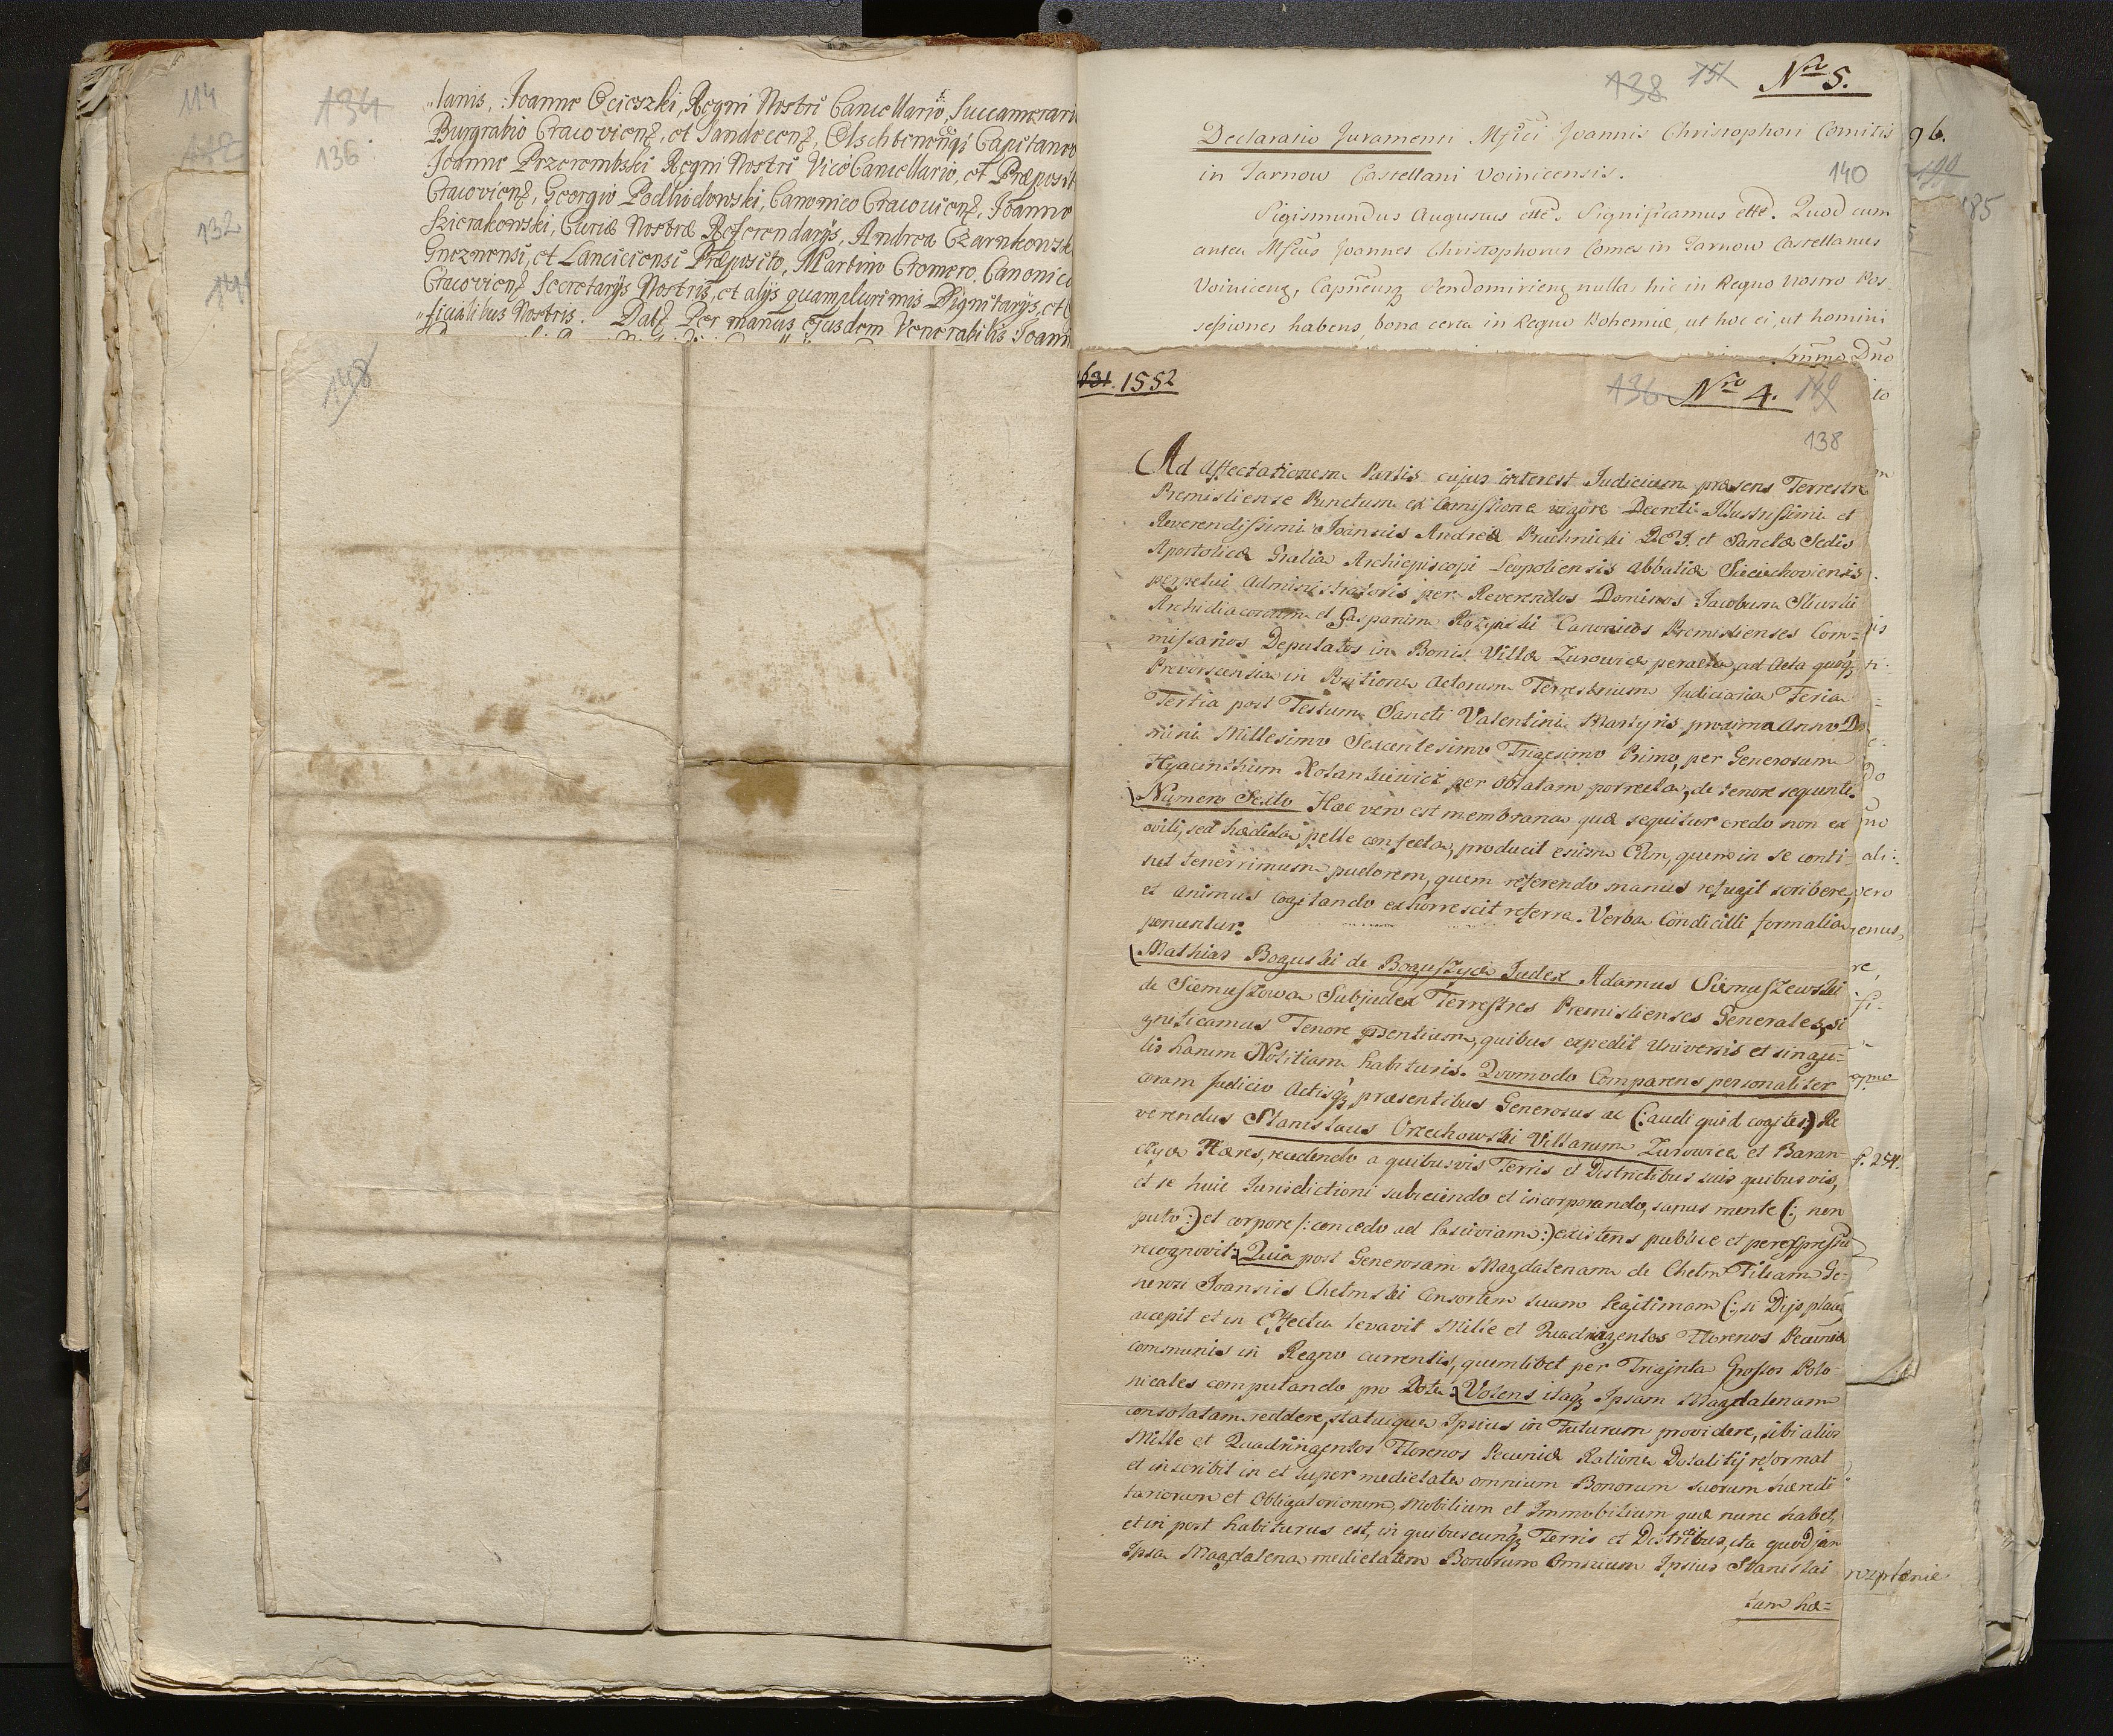 114
132
134
136
„tanis, Joanne Ocieszki, Regni Nostri Cancellario, Succamerari
Burgrabio Cracovienʒ, et Sandecenʒ, Olschtinengʒ Capitaneo
Joanne Przerembski Regni Nostri ViceCancellario, et Præposit
Cracovienʒ, Georgio Podlodowski, Canonico Cracovienʒ, Joanne
Szierakowski, Curiæ Nostræ Referendarijs, Andrea Czarnkowsk
Gneznensi, et Lanciciensi Præposito, Martino Cromero, Canonico
Cracovienʒ Secretarijs Nostris, et alijs quamplurimis Dignitarijs, et
„ficialibus Nostris. Datʒ Per manus ejusdem Venerabilis Joann
148
138 151 Nro 5.
Declaratio Juramenti Mfici Joannis Christophori Comitis
in Tarnow Castellani Voinicensis.
140
Sigismundus Augustus ettc. Significamus ettc. Quod cum
antea Mficus Joannes Christophorus Comes in Tarnow Castellanus
Voinicenʒ, Capneusqʒ Sendomirienʒ nullas hic in Regno Nostro Pos
sessiones habens, bona certa in Regno Bohemiæ, ut hoc ei, ut homini
Duo
96.
190
185
1631. 1552
136 Nro 4. 149
138
Ad Affectationem Partis cujus interest Judicium præsens Terrestre
Premisliense Punctum ex Comissione vigore Decreti Illustrissimi et
Reverendissimi Joannis Andreæ Pruchnicki D. G. et Sanctæ Sedis
Apostolicæ Gratia Archiepiscopi Leopoliensis Abbatiæ Sieciechoviensis
perpetui Administratoris per Reverendos Dominos Jacobum Sliwski
Archidiaconum et Gasparum Rozynski Canonicos Premislienses Com=
missarios Deputatos in Bonis Villæ Zurowicæ peracta, ad Acta quoqʒ
Prevorscensia in Positione Actorum Terrestrium Judiciaria Feria
Tertia post Festum Sancti Valentini Martyris proxima Anno Do
mini Millesimo Sexcentesimo Trigesimo Primo, per Generosum
Hyacinthum per Oblatam porrecta, de tenore sequenti.
Numero Sexto Hæc vero est membrana quæ sequitur credo non ex
ovili, sed hædida pelle confecta, producit enim Eum, quem in se conti=
net tenerrimum pudorem, quem referendo manus refugit scribere,
et animus cogitando exhorrescit referre. Verba Condicilli formalia
ponuntur.
Mathias Boguski de Boguszyce Judex Adamus Siemuszewski
de Siemuszowa Subjudex Terrestres Premislienses Generales, si
gnificamus Tenore pdentium, quibus expedit Universis et singu=
lis harum Notitiam habituris. Quomodo Comparens personaliter
coram Judicio Actisqʒ præsentibus Generosus ac (:audi quid cogites:) Re
verendus Stanislaus Orzechowski Villarum Zurowice et Baran=
czyce Hæres, recedendo a quibusvis Terris et Districtibus suis quibusvis,
et se huic Jurisdictioni subiiciendo et incorporando, sanus mente (:, non
puto :) et corpore /: concedo ad lasciviam :) existens publice et per expressum
recognovit: Quia post Generosam Magdalenam de Chelm Filiam Ge=
nerosi Joannis Chelmski Consortem suam legitimam (:, si Dijs placet
accepit et in Effectu levavit Mille et Quadringentos Florenos Pecuniæ
communis in Regno currentis, quemlibet per Triginta Grossos Polo=
nicales computando pro Dote. Volens itaqʒ Ipsam Magdalenam
consolatam reddere, statuique Ipsius in Futurum providere, sibi alios
Mille et Quadringentos Florenos Pecuniæ Ratione Dotalitij reformat
et inscribit in et super medietate omnium Bonorum suorum hæredi
tariorum et Obligatoriorum, Mobilium et Immobilium quæ nunc habet,
et in post habiturus est, in quibuscunqʒ Terris et Districtibus, ita quod jam
Ipsa Magdalena medietatem Bonorum Omnium Ipsius Stanislai
tam hæ=
f. 254.